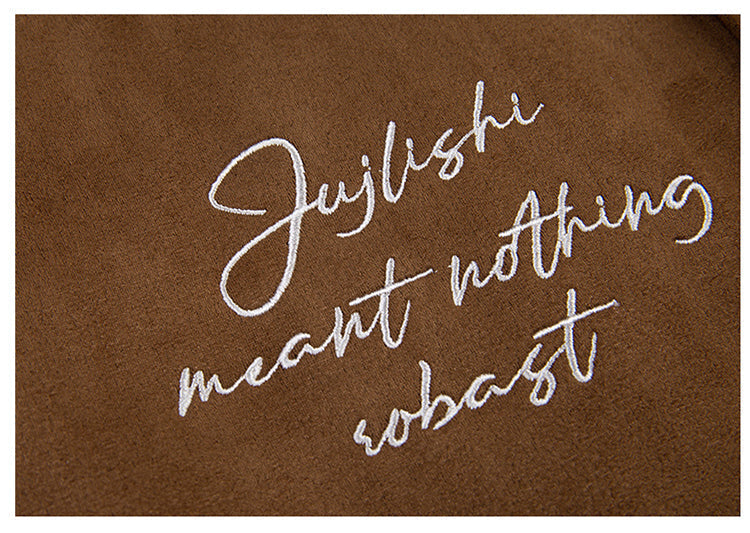 Jujlishi
meant nothing
robast